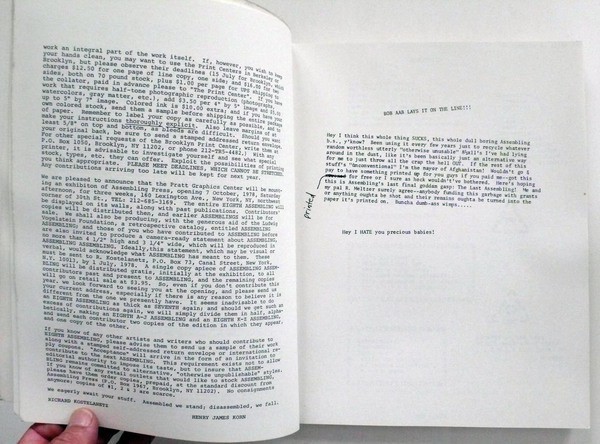 work an integral part of the work itself. If, however, you wish to keep
your hands clean, you may want to use the Print Centers in Berkeley or
Brooklyn, but please observe their deadlines (15 July for Brooklyn)
charges $12.50 for one page of line copy, one side; and $16.00 for two
sides, both on 70 pound stock, plus $1.00 per page for UPS shipping to
the collator, paid in advance please to "The Print Center". If you have
work that requires half-tone photographic reproduction (photographs,
watercolors, gray matter, etc.), add $3.50 per 4" by 5" image and $5.00
up to 5" by 7" image. Colored ink is $10.00 extra; and if you have your
own colored stock, send them a sample before shipping the entire package
of paper. Remember to label your copy as carefully as possible, and to
make your instructions thoroughly explicit. Also leave margins of at
least 5/8" on top and bottom, as bleeds are difficult. And if you want
your original back, be sure to send a stamped addressed return envelope.
For other special requests of the Brooklyn Print Center, write them at
P.O. Box 1050, Brooklyn, NY 11202, or phone 212-
printer, it is advisable to investigate yourself and see what paper
stock, types, etc. they can offer. Exploit the possibilities of printing
you think appropriate. PLEASE MEET DEADLINES, WHICH CANNOT BE STRETCHED.
Any contributions arriving too late will be kept for next year.
We are pleased to announce that the Pratt Graphics Center will be mount-
ing an exhibition of Assembling Press, opening 7 October, 1978, Saturday
afternoon, for three weeks, at Lexington Ave., New York, NY, northwest
corner of 30th St., TEL: 212-685-3169. The entire EIGHTH ASSEMBLING will be
displayed on its walls, along with past publications. Contributors'
copies will be distributed then, and earlier ASSEMBLINGS will be for
sale. We shall also be producing, with the generous aid of the Ludwig
Vogelstein Foundation, a retrospective catalog, entitled ASSEMBLING
ASSEMBLING; and those of you who have contributed to ASSEMBLING before
are also invited to produce a camera-ready statement about ASSEMBLING
no more than 4 1/2" high and 3 1/4" wide, which will be reproduced in
ASSEMBLING ASSEMBLING. Ideally, this statement, which may be visual or
verbal, would acknowledge what ASSEMBLING has meant to them. These
must be sent to R. Kostelanetz, P.O. Box 73, Canal Street, New York,
N.Y. 10013, by 1 July, 1978. A single copy apiece of ASSEMBLING ASSEM-
BLING will be distributed gratis, initially at the exhibition, to all
contributors past and present to ASSEMBLING, and the remaining copies
will go on retail sale at $3.95. So, even if you don't contribute this
year, we look forward to seeing you at the opening, and please send us
your current address, especially if there is any reason to believe it is
different from the one we presently have. It seems inadvisable to do
an EIGHTH ASSEMBLING as thick as SEVENTH again; and should we get such an
excess of contributions again, we will simply divide them in half, alpha-
betically, making an EIGHTH A-J ASSEMBLING and an EIGHTH K-Z ASSEMBLING,
and send each contributor two copies of the edition in which they appear,
and one copy of the other.
If you know of any other artists and writers who should contribute to
EIGHTH ASSEMBLING, please advise them to send us a sample of their work
along with a stamped self-addressed return envelope or international re-
ply coupons. "Acceptance" will arrive in the form of an invitation to
contribute to the next ASSEMBLING. This requirement exists not to allow
editorial authority to impose its taste, but to insure that ASSEM-
BLING remains committed to alternative, "otherwise unpublishable" styles.
If you know of any retail outlets that would like to stock ASSEMBLING,
please have them order copies, prepaid, at the standard discount from
Assembling Press (P.O. Box 1967, Brooklyn, NY 11202). No consignments
anymore; copies of #1, 2 & 3 are scarce.
We eagerly await your stuff. Assembled we stand; disassembled, we fall.
RICHARD KOSTELANETZ
HENRY JAMES KORN
BOB AAB LAYS IT ON THE LINE!!!
Hey I think this whole thing SUCKS, this whole dull boring Assembling
b.s., y'know? Been using it every few years just to recycle whatever
random worthless utterly "otherwise unusable" Njall's I've had lying
around in the dust, like it's been basically just an alternative way
for me to just throw all the crap the hell OUT. If the rest of this
stuff's "Unconventional" I'm the mayor of Afghanistan! Wouldn't go &
pay to have something printed up for you guys if you paid me--got this
for free or I sure as heck wouldn't've bothered. Here's hoping
this is Assembling's last final golden gasp: The Last Assembling! Me and
my pal R. Meltzer surely agree--anybody funding this garbage with grants
or anything oughta be shot and their remains oughta be turned into the
paper it's printed on. Buncha dumb-ass wimps....
printed
Hey I HATE you precious babies!